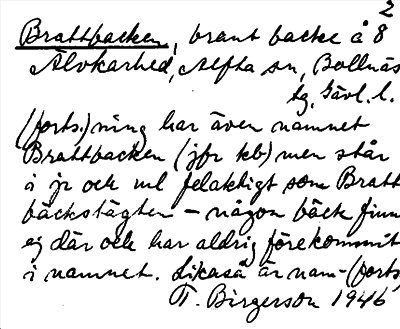 2
Brattbacken, brant backe å 8
Älvkarhed, Alfta sn, Bollnäs
tg, Gävl. l.
(forts.) ning har även namnet
Brattbacken (jfr kb) men står
å jr och ul felaktigt som Bratt
bäckstägten – någon bäck finn
ej där och har aldrig förekommit
i namnet. Likaså är nam- (forts
T. Birgerson 1946